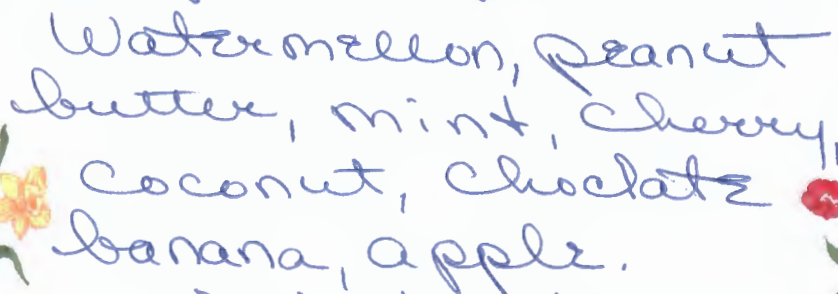 Watermellon, peanut
butter, mint, cherry,
coconut, choclate
banana, apple.